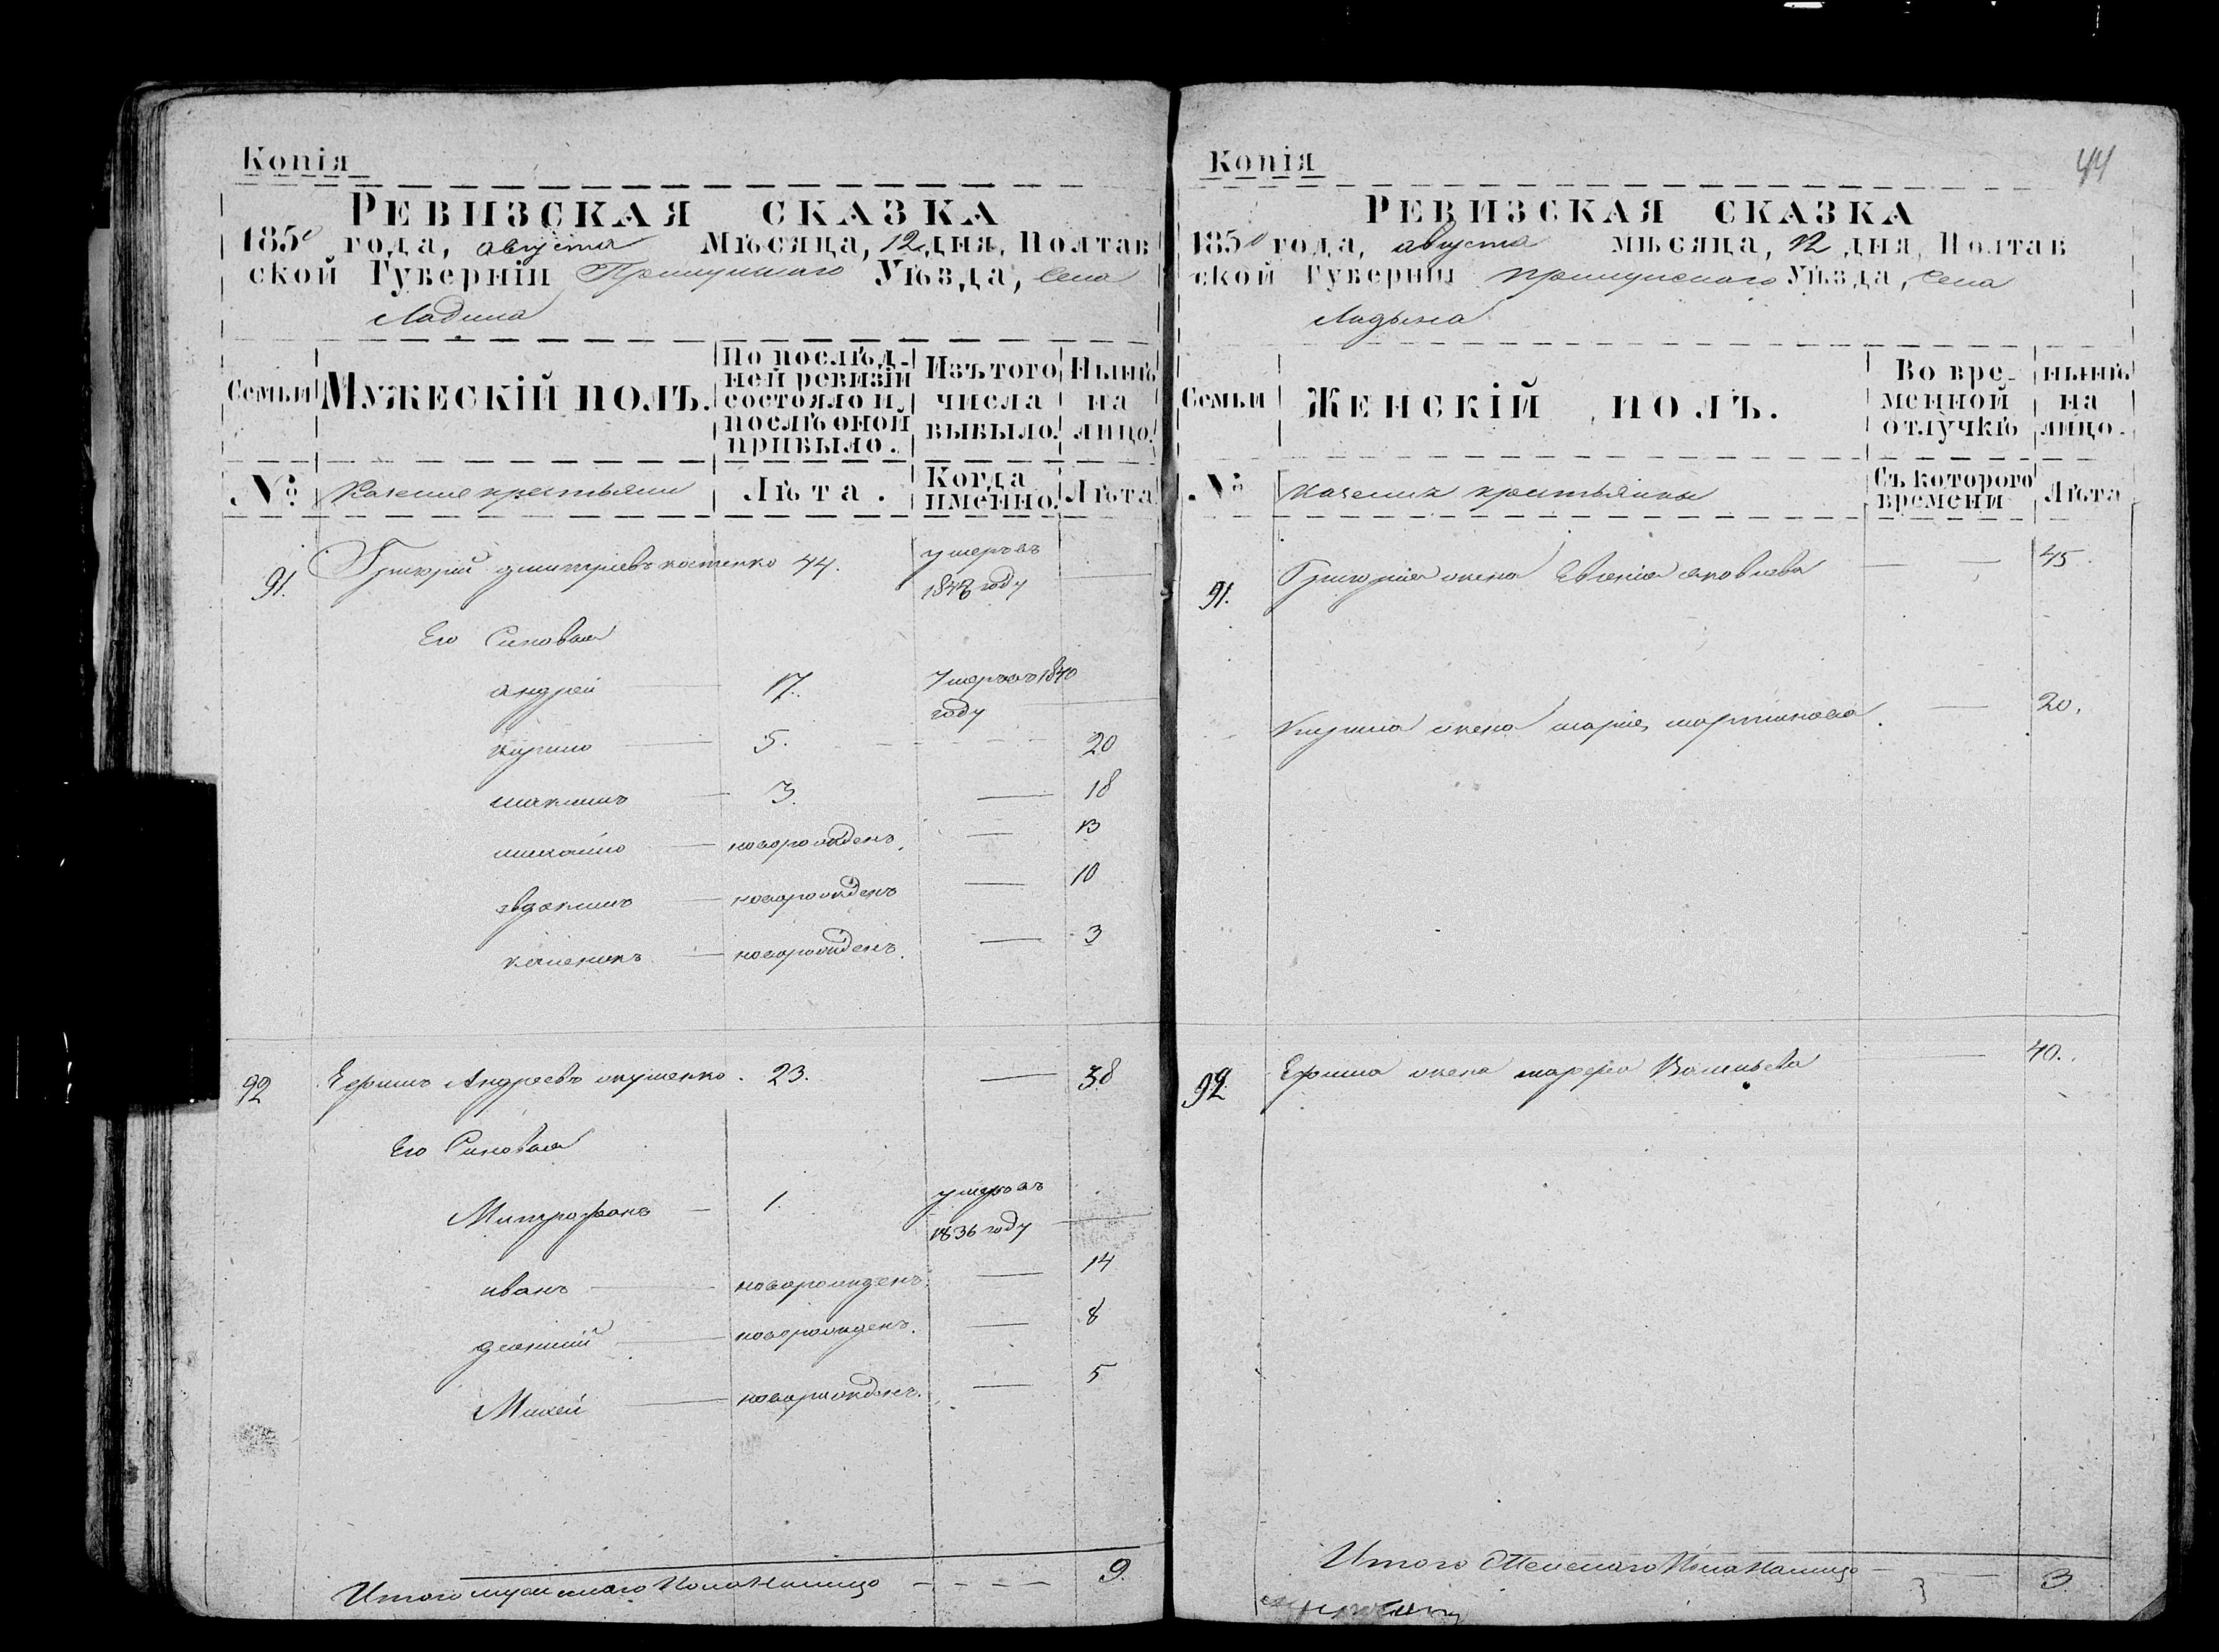 Копія
РЕВИЗСКАЯ СКАЗКА
1850 года, августа Мѣсяца, 12 дня, Полтав
ской Губерніи Прилуцкаго Уѣзда, Села
Ладина
Семьи
МУЖЕСКІЙ ПОЛЪ.
По послѣд-
ней ревизіи
состояло и
послѣ оной
прибыло.
Изъ того
числа
выбыло.
Нынѣ
на
лицо.
№
Казенне крестьяни
Лѣта.
Когда
именно.
Лѣта
91. Григорий дмитріевъ костенко 44. умеръ въ
1848 году
Его Синовья
андрей 17. умеръ въ 1840
году
кирило 5. 20
максимъ 3. 18
михайло новорожденъ. 13
евдокимъ новорожденъ 10
новорожденъ. 3
92 Ефимъ Андреевъ 23. 38
Его Синовья
Митрофанъ 1. умеръ въ
1836 году
иванъ новорожденъ. 14
новорожденъ. 8
Михей новорожденъ. 5
Итого мужескаго Пола Налицо 9.
Копія
44
РЕВИЗСКАЯ СКАЗКА
1850 года, августа мѣсяца, 12 дня, Полтав
ской Губерніи прилуцкаго Уѣзда, Села
Ладына
Семьи
ЖЕНСКІЙ ПОЛЪ.
Во вре-
менной
отлучкѣ
нынѣ
на
лицо.
№
крестьянки
Съ котораго
времени
Лѣта
91. Григорія жена яковлева 45.
Кирила жена марія мартинова. 20.
92. Ефима жена марфа Васильева 40.
Итого Женскаго Пола Налицо 3